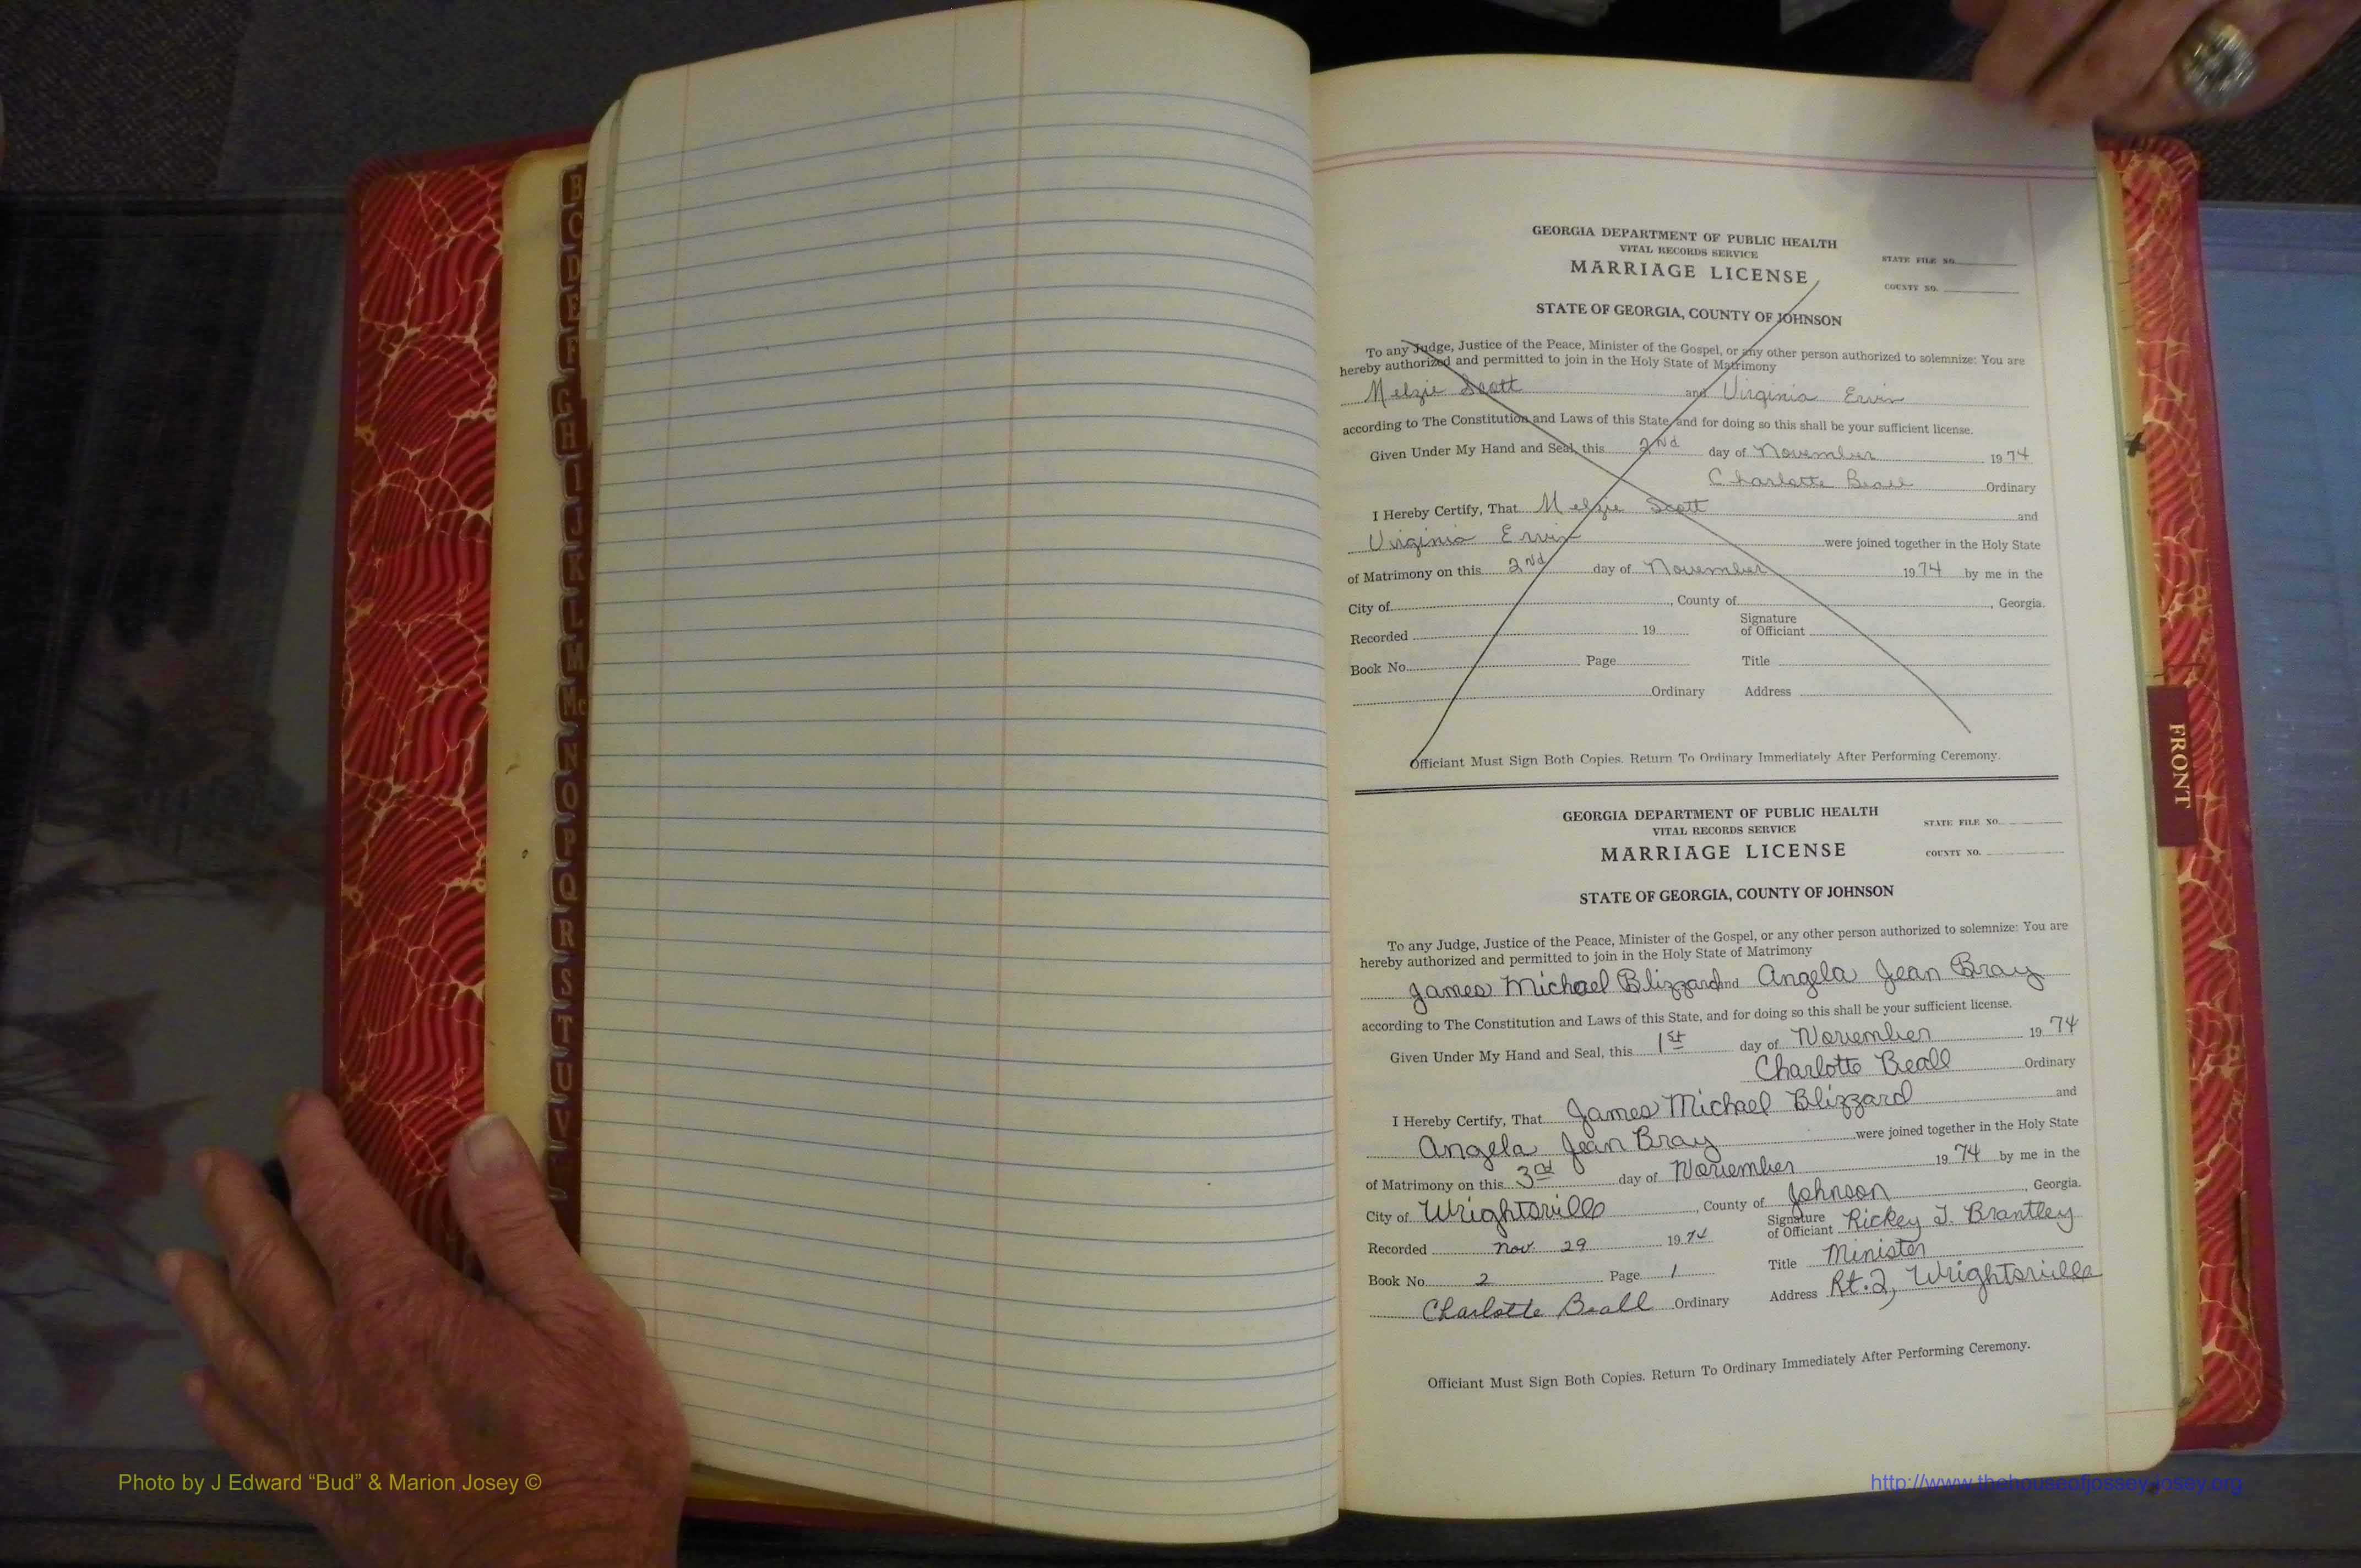 B
C
D
E
F
G
H
I
J
K
L
M
Mc
N
O
P
Q
R
S
T
U
V
GEORGIA DEPARTMENT OF PUBLIC HEALTH
VITAL RECORDS SERVICE
STATE FILE NO.
MARRIAGE LICENSE
COUNTY NO.
STATE OF GEORGIA, COUNTY OF JOHNSON
To any Judge, Justice of the Peace, Minister of the Gospel, or any other person authorized to solemnize: You are
hereby authorized and permitted to join in the Holy State of Matrimony
Melzie Scott and Virginia Ervin
according to The Constitution and Laws of this State, and for doing so this shall be your sufficient license.
Given Under My Hand and Seal, this 2nd day of November 1974
Charlotte Beall Ordinary
I Hereby Certify, That Melzie Scott and
Virginia Ervin were joined together in the Holy State
of Matrimony on this 2nd day of November 1974 by me in the
City of , County of , Georgia.
Recorded 19 Signature of Officiant
Book No. Page Title
Ordinary Address
Officiant Must Sign Both Copies. Return To Ordinary Immediately After Performing Ceremony.
GEORGIA DEPARTMENT OF PUBLIC HEALTH
VITAL RECORDS SERVICE
STATE FILE NO.
MARRIAGE LICENSE
COUNTY NO.
STATE OF GEORGIA, COUNTY OF JOHNSON
To any Judge, Justice of the Peace, Minister of the Gospel, or any other person authorized to solemnize: You are
hereby authorized and permitted to join in the Holy State of Matrimony
James Michael Blizzard and Angela Jean Bray
according to The Constitution and Laws of this State, and for doing so this shall be your sufficient license.
Given Under My Hand and Seal, this 1st day of November 1974
Charlotte Beall Ordinary
I Hereby Certify, That James Michael Blizzard and
Angela Jean Bray were joined together in the Holy State
of Matrimony on this 3rd day of November 1974 by me in the
City of Wrightsville, County of Johnson, Georgia.
Recorded Nov. 29 1974 Signature of Officiant Rickey J. Brantley
Book No. 2 Page 1 Title Minister
Charlotte Beall Ordinary Address Rt. 2, Wrightsville
Officiant Must Sign Both Copies. Return To Ordinary Immediately After Performing Ceremony.
FRONT
Photo by J Edward “Bud” & Marion Josey ©
http://www.thehouseofjossey-josey.org